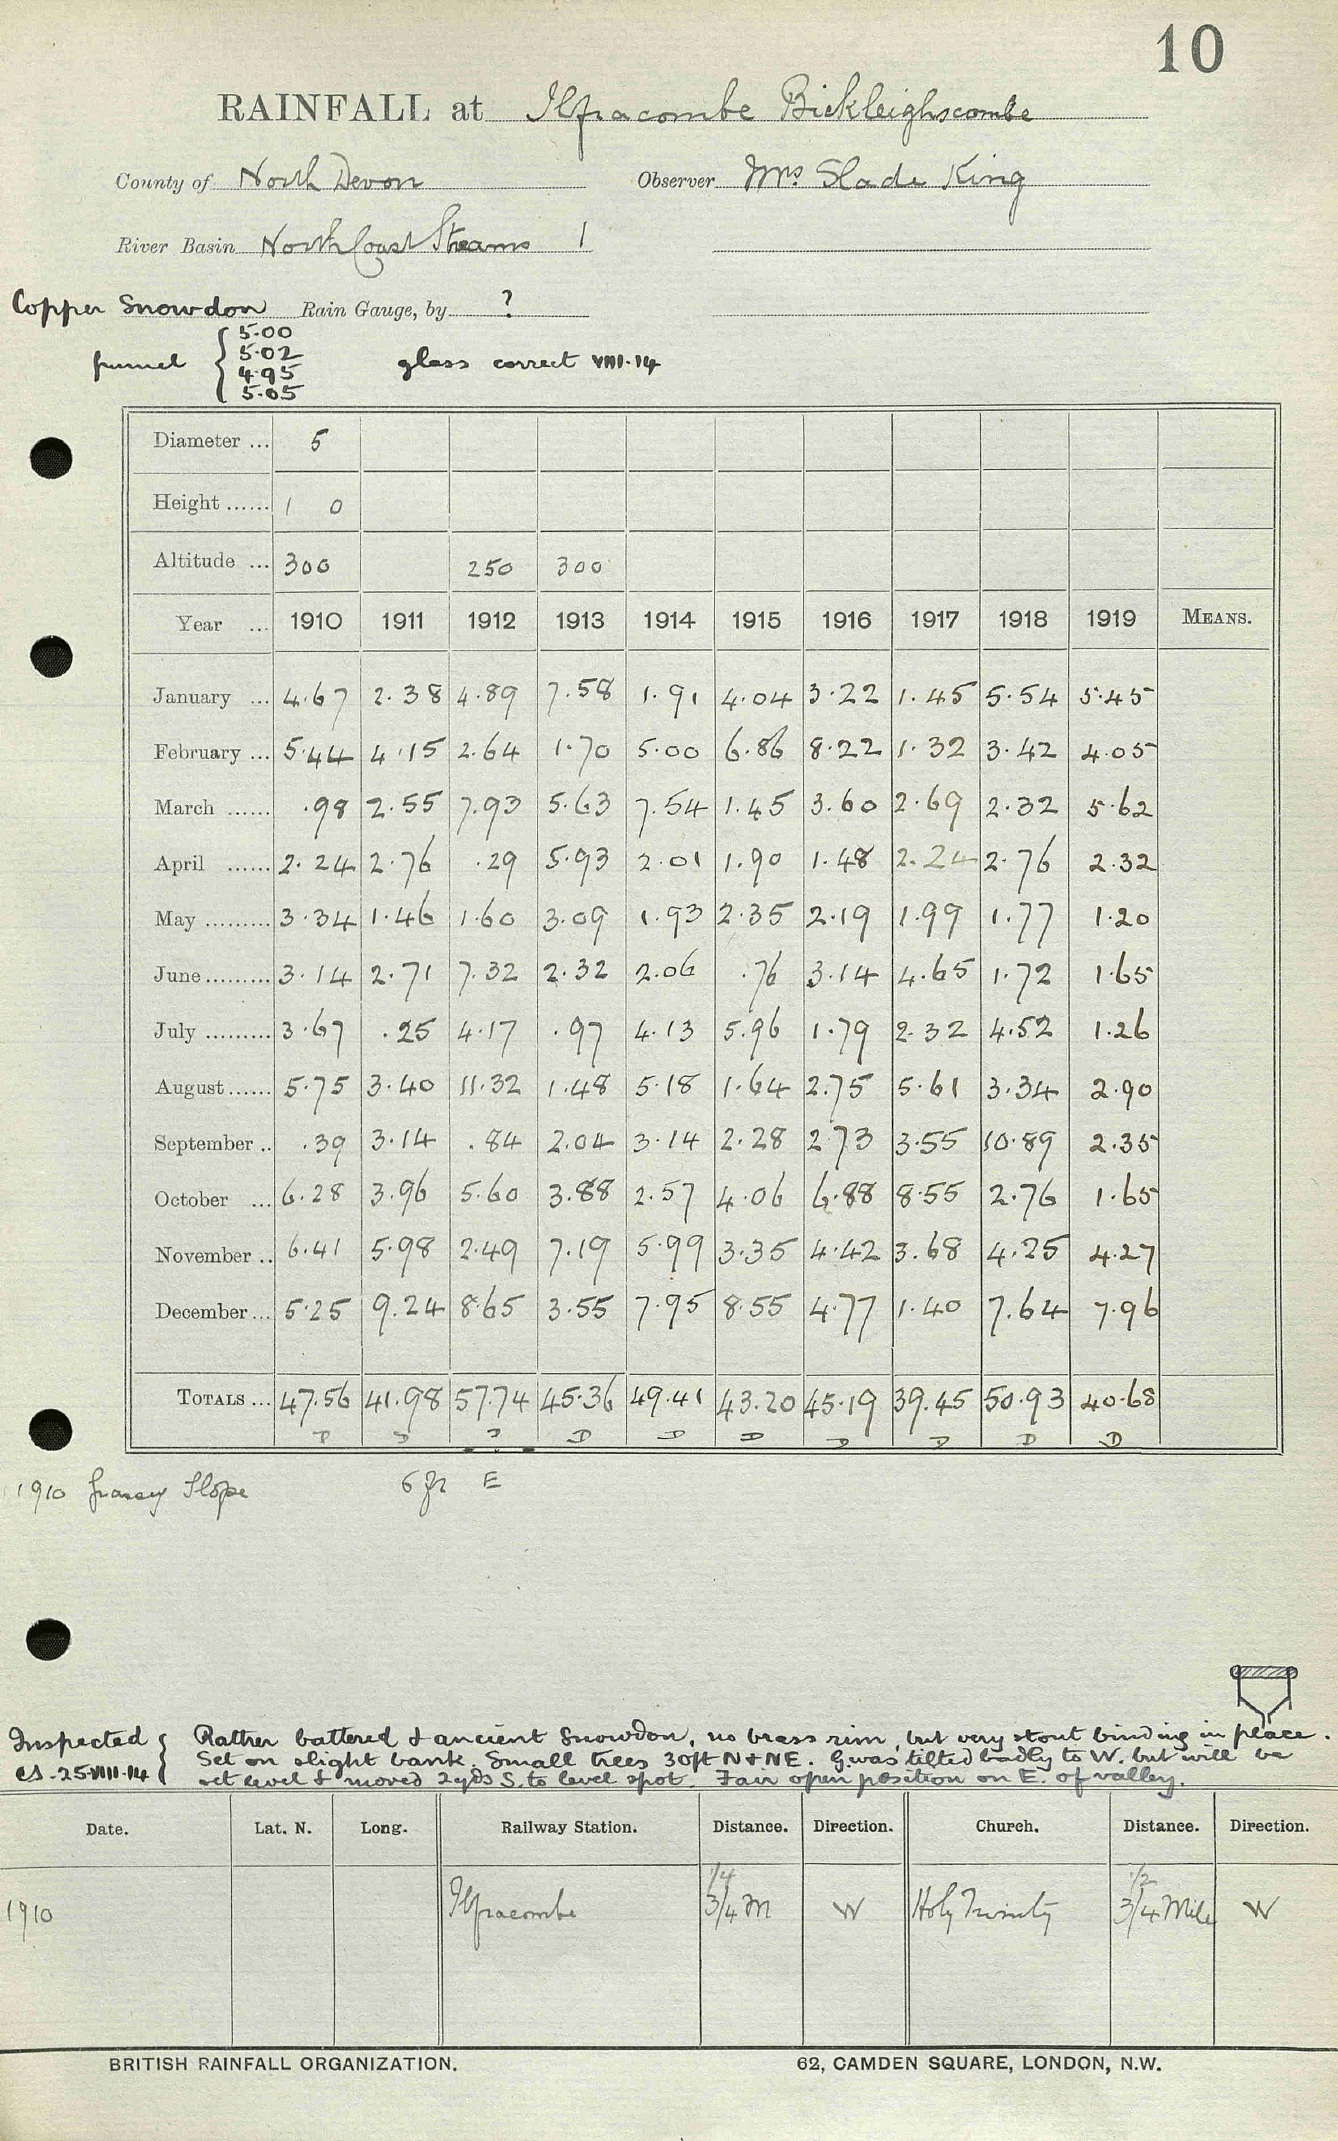 10
RAINFALL at Ilfracombe Bickleighscombe
County of North Devon Observer Mrs Slade King
River Basin North Coast Streams 1
Copper Snowdon Rain Gauge, by ?
funnel { 5.00 glass correct VIII.14
5.02
4.95
5.05
Diameter ... 5
Height ...... 1 0
Altitude ... 300 250 300
Year ... 1910 1911 1912 1913 1914 1915 1916 1917 1918 1919 MEANS.
January ... 4.67 2.38 4.89 7.58 1.91 4.04 3.22 1.45 5.54 5.45
February ... 5.44 4.15 2.64 1.70 5.00 6.86 8.22 1.32 3.42 4.05
March ...... .98 2.55 7.93 5.63 7.54 1.45 3.60 2.69 2.32 5.62
April ...... 2.24 2.76 .29 5.93 2.01 1.90 1.48 2.24 2.76 2.32
May ......... 3.34 1.46 1.60 3.09 1.93 2.35 2.19 1.99 1.77 1.20
June ......... 3.14 2.71 7.32 2.32 2.06 .76 3.14 4.65 1.72 1.65
July ......... 3.67 .25 4.17 .97 4.13 5.96 1.79 2.32 4.52 1.26
August ...... 5.75 3.40 11.32 1.48 5.18 1.64 2.75 5.61 3.34 2.90
September .. .39 3.14 .84 2.04 3.14 2.28 2.73 3.55 10.89 2.35
October ... 6.28 3.96 5.60 3.88 2.57 4.06 6.88 8.55 2.76 1.65
November .. 6.41 5.98 2.49 7.19 5.99 3.35 4.42 3.68 4.25 4.27
December ... 5.25 9.24 8.65 3.55 7.95 8.55 4.77 1.40 7.64 7.96
TOTALS ... 47.56 41.98 57.74 45.36 49.41 43.20 45.19 39.45 50.93 40.68
D D D D D D D D D D
1910 Grassy Slope 6 fr E
Inspected { Rather battered & ancient Snowdon, no brass rim, but very stout binding in place.
CS. 25.VIII.14 { Set on slight bank. Small trees 30ft N & NE. G. was tilted badly to W. but will be
set level & moved 2yds S. to level spot. Fair open position on E. of valley.
Date. Lat. N. Long. Railway Station. Distance. Direction. Church. Distance. Direction.
1/4 1/2
1910 Ilfracombe 3/4 M W Holy Trinity 3/4 Mile W
BRITISH RAINFALL ORGANIZATION. 62, CAMDEN SQUARE, LONDON, N.W.